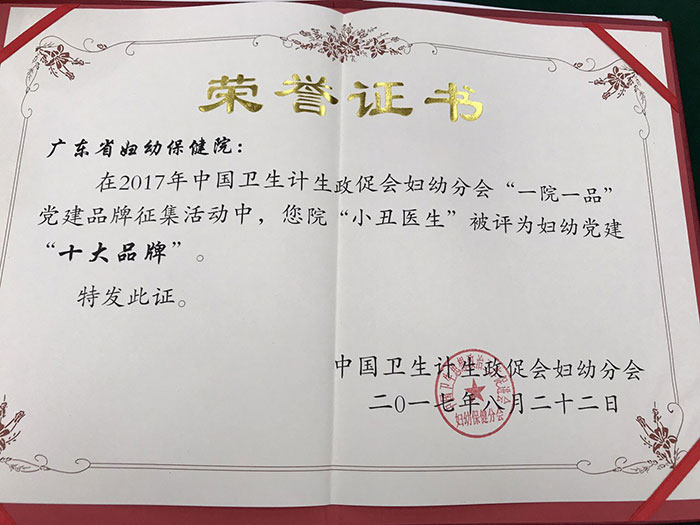 荣誉证书
广东省妇幼保健院：
在2017年中国卫生计生政促会妇幼分会“一院一品”
党建品牌征集活动中，您院“小丑医生”被评为妇幼党建
“十大品牌”。
特发此证。
中国卫生计生政促会妇幼分会
二〇一七年八月二十二日
妇幼保健分会